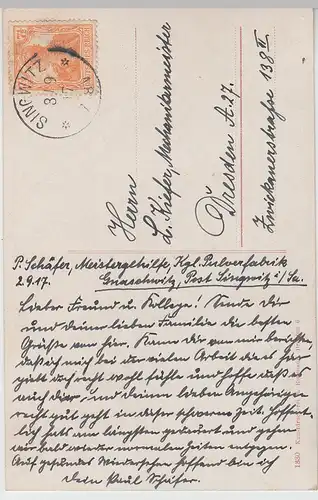 SINGWITZ
3 9
Herrn
L. Kiefer, Mechanikermeister
Dresden A. 27.
Zwickauerstrasse 138 II
P. Schäfer, Meistergehilfe, Kgl. Pulverfabrik
Gnaschwitz, Post Singwitz i/Sa.
2.9.17.
Lieber Freund u. Kollege! Sende Dir
und deiner lieben Familie die besten
Grüsse von hier. Kann dir von mir berichten,
daß ich mich bei der vielen Arbeit die es hier
giebt doch recht wohl fühle und hoffe daß es
auch dir, und deinen lieben Angehörigen
recht gut geht in dieser schweren Zeit. Hoffent-
lich hats am längsten gedauert und gehen
wir bald wieder normalen Zeiten entgegen.
Auf gesundes Wiedersehen hoffend bin ich
dein Paul Schäfer.
1850